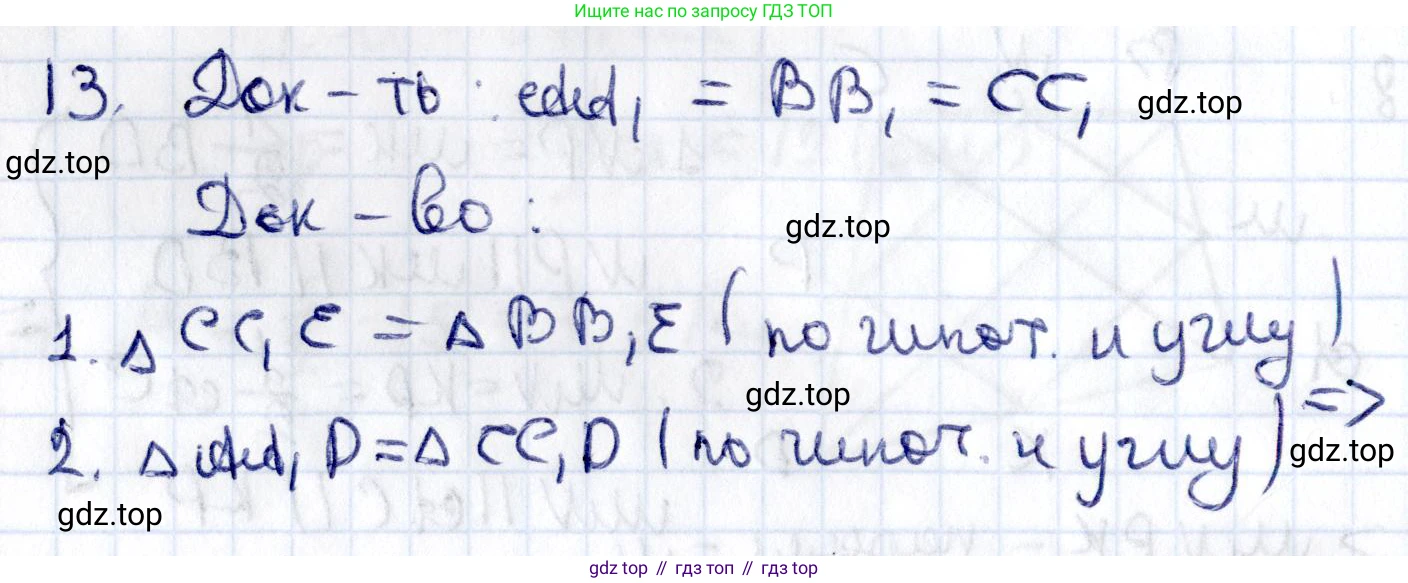 Ищите нас по запросу ГДЗ ТОП
13. Док-ть: AA₁ = BB₁ = CC₁
gdz.top
gdz.top
Док-во:
gdz.top
1. Δ CC₁E = Δ BB₁E (по гипот. и углу)
gdz.top
2. Δ AA₁D = Δ CC₁D (по гипот. и углу) =>
gdz.top
gdz.top
gdz.top // гдз топ // gdz top